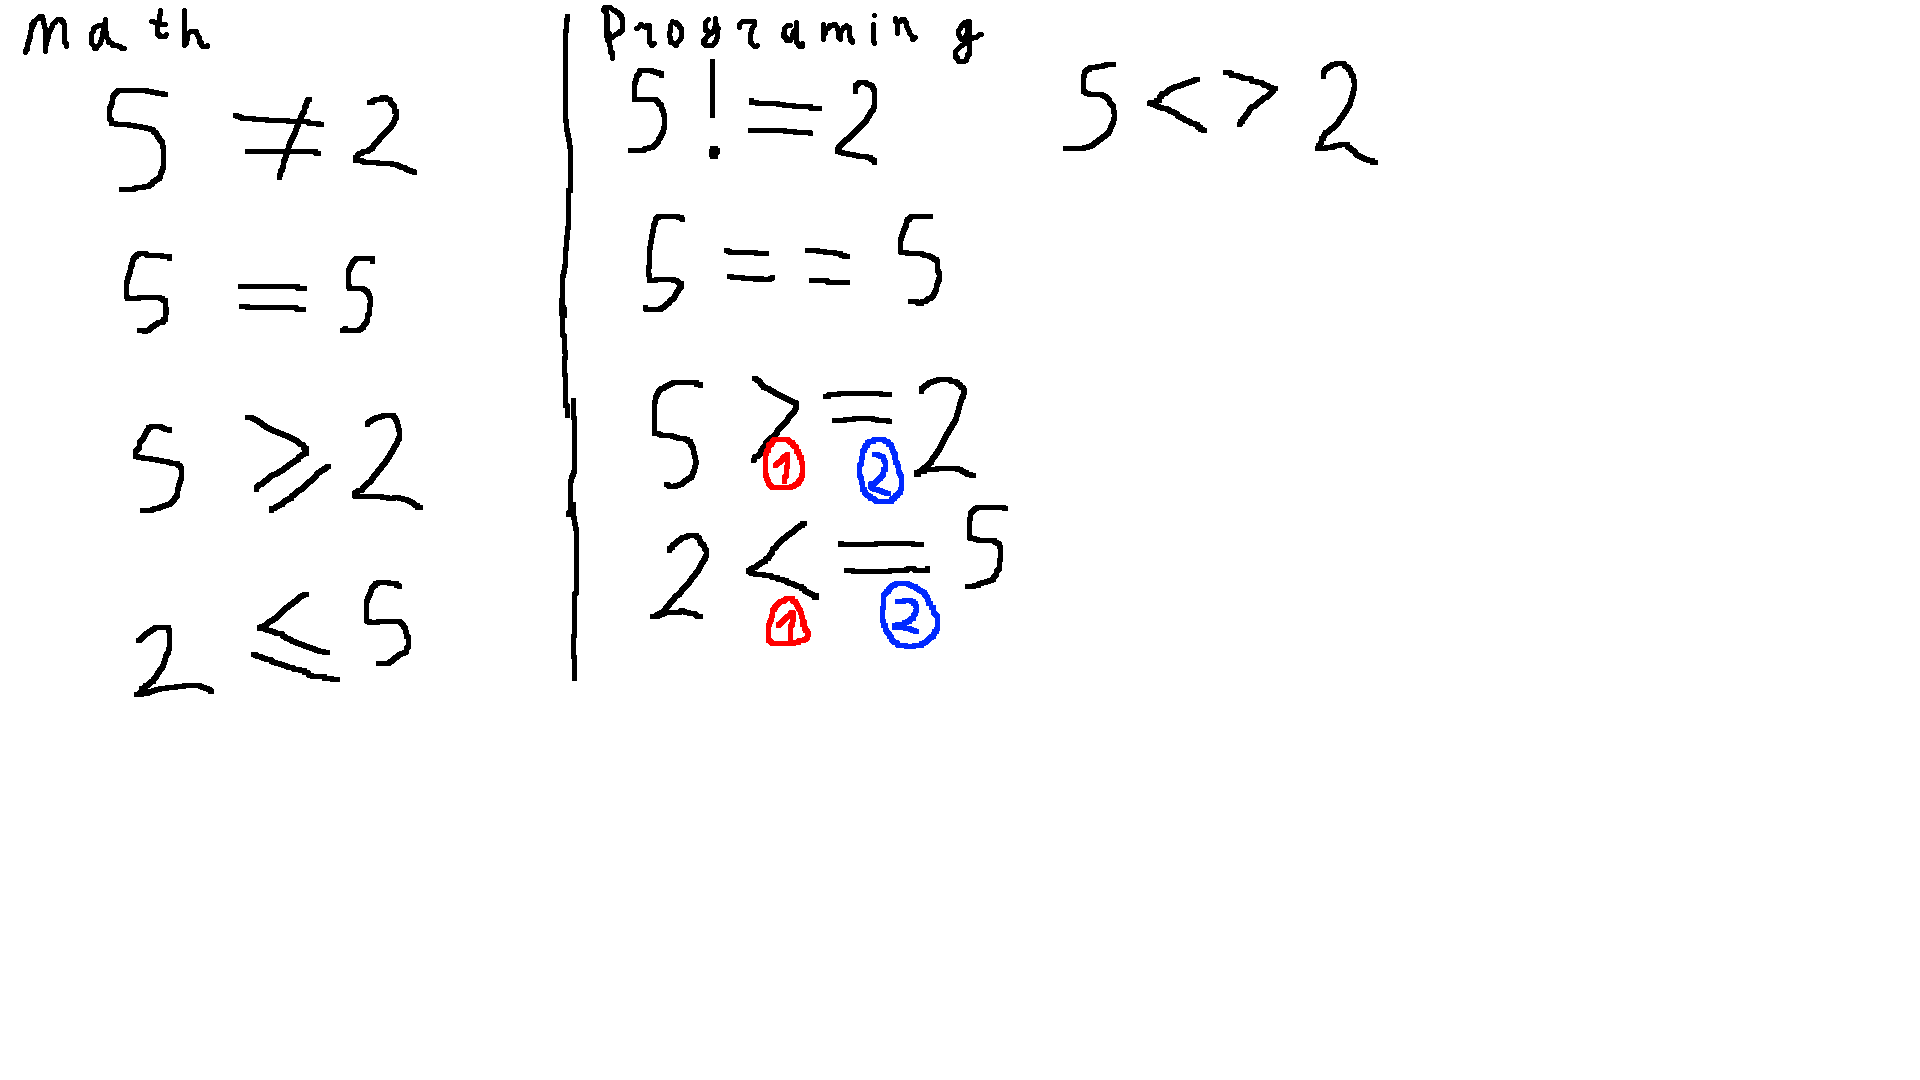 Math
5 ≠ 2
5 = 5
5 ⩾ 2
2 ⩽ 5
Programing
5 != 2 5 <> 2
5 == 5
5 >= 2
1 2
2 <= 5
1 2